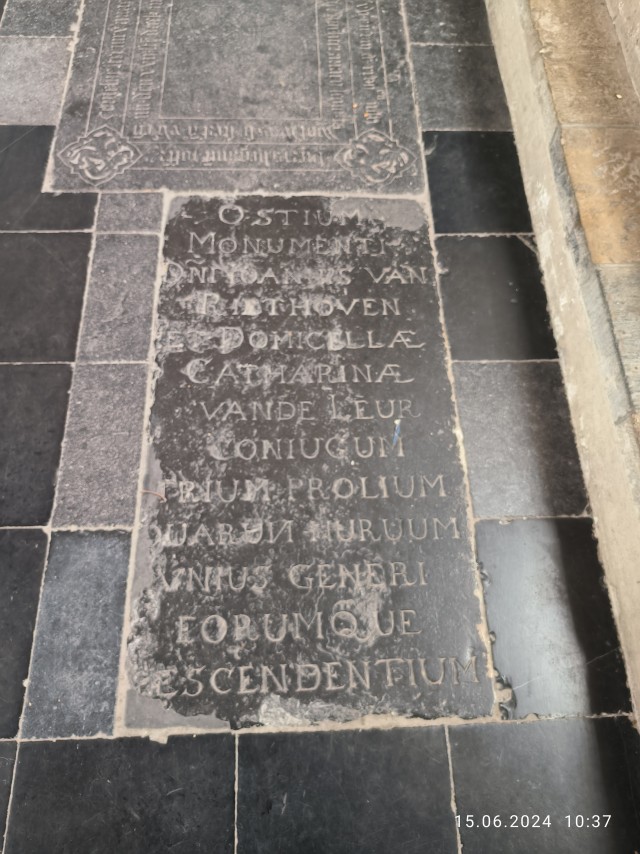 OSTIUM
MONUMENTI
DÑI IOANNIS VAN
RIETHOVEN
ET DOMICELLÆ
CATHARINÆ
VANDE LEUR
CONIUGUM
TRIUM PROLIUM
QUARUM NURUUM
VNIUS GENERI
EORUMQUE
DESCENDENTIUM
15.06.2024 10:37